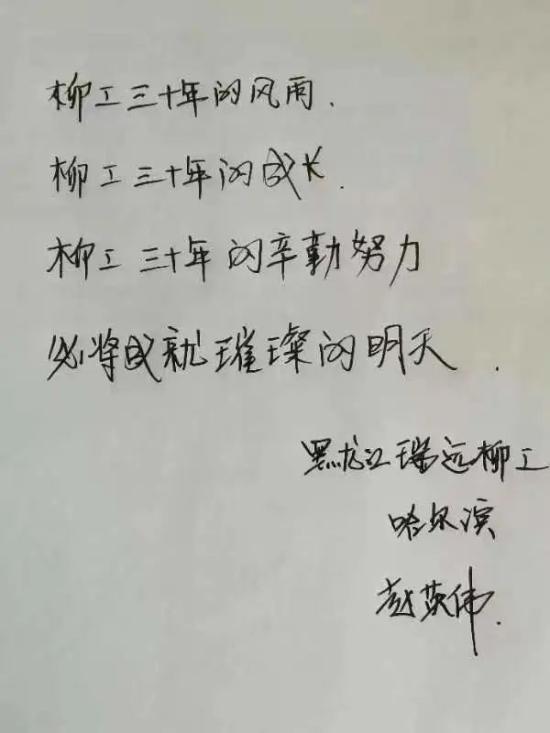 柳工三十年的风雨.
柳工三十年的成长.
柳工三十年的辛勤努力
必将成就璀璨的明天.
黑龙江瑞远柳工
哈尔滨
赵英伟.